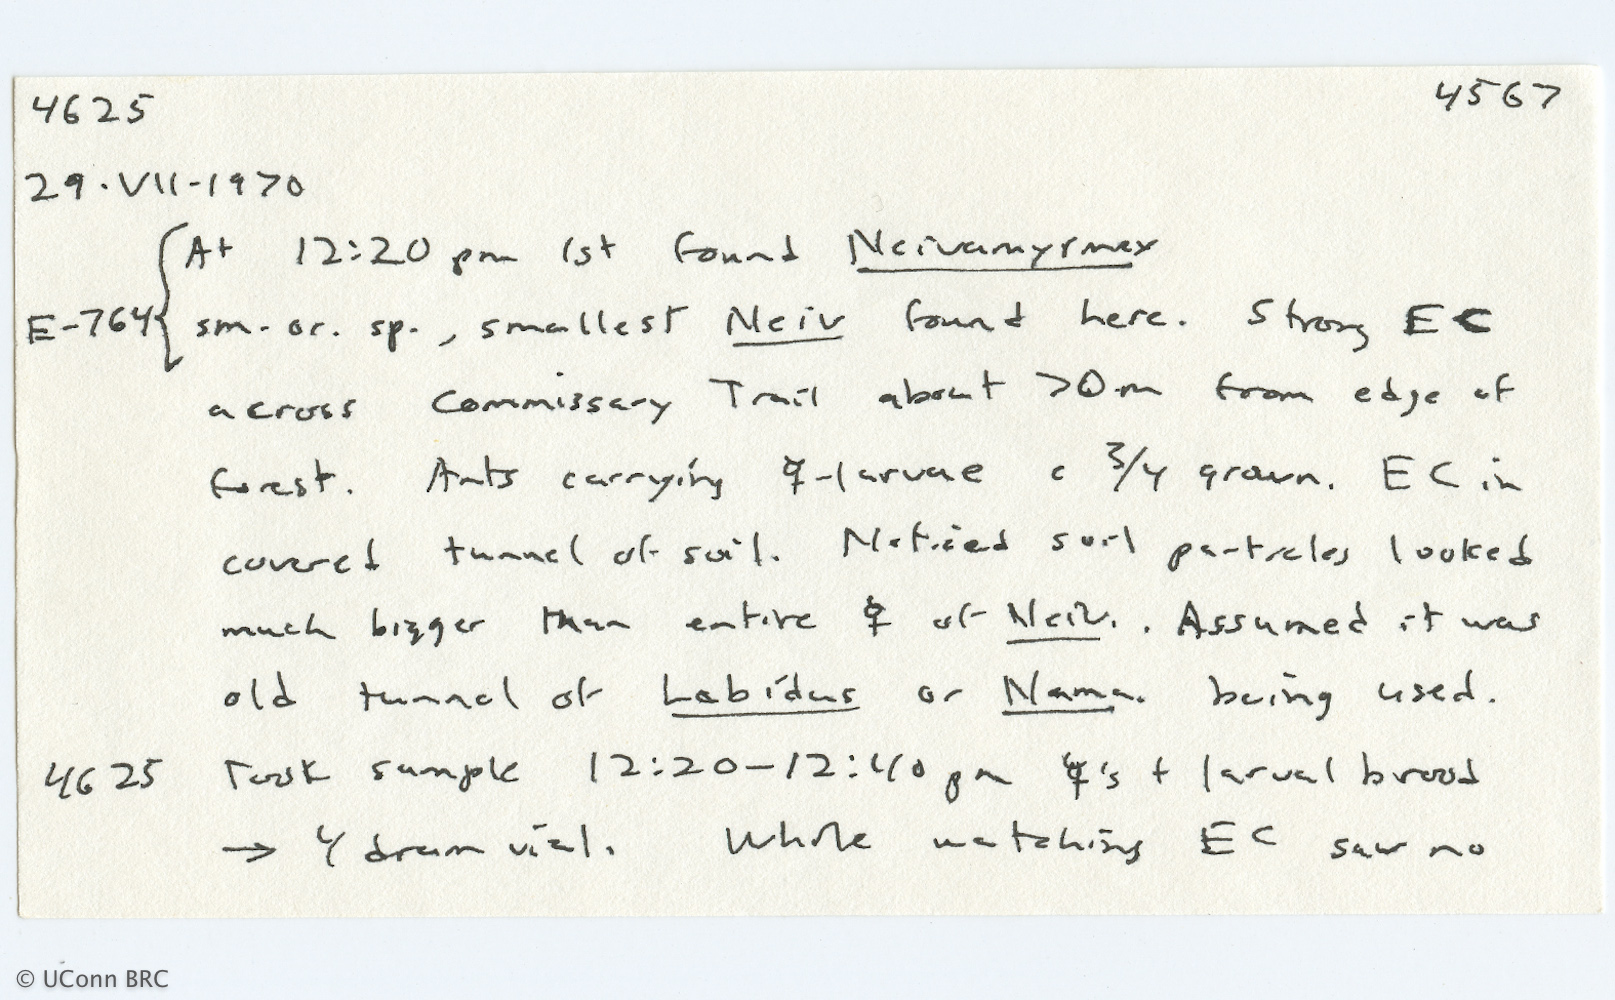 4625 4567
29-VII-1970
At 12:20 pm 1st found Neivamyrmex
E-764 { sm. or. sp., smallest Neiv found here. Strong EC
across Commissary Trail about 70 m from edge of
forest. Ants carrying ☿-larvae c 3/4 grown. EC in
covered tunnel of soil. Noticed soil particles looked
much bigger than entire ☿ of Neiv.. Assumed it was
old tunnel of Labidus or Noma. being used.
4625 Took sample 12:20-12:40 pm ☿'s + larval brood
→ 4 dram vial. While watching EC saw no
© UConn BRC